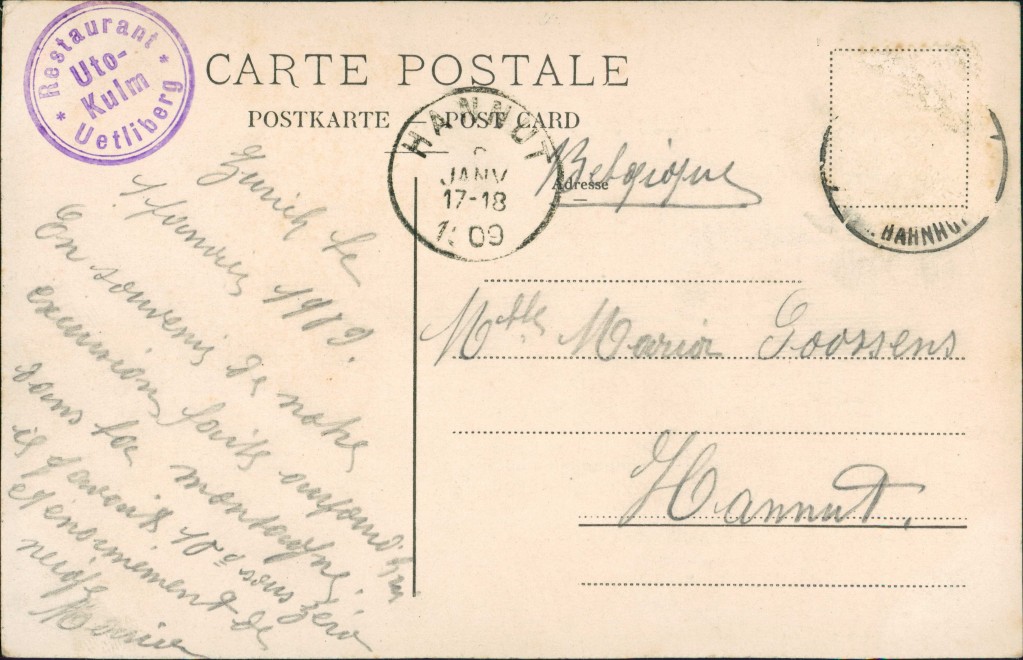 Restaurant
Uto-
Kulm
Uetliberg
CARTE POSTALE
POSTKARTE — POST CARD
HANNUT
JANV
17-18
09
Belgique
Adresse
BAHNHOF
Zurich le
janvier 1909.
En souvenir de notre
excursion faite aujourd'hui
dans la montagne.
il faisait 10° sous zéro
et énormément de
neige
Mlle Maria Goossens
Hannut.